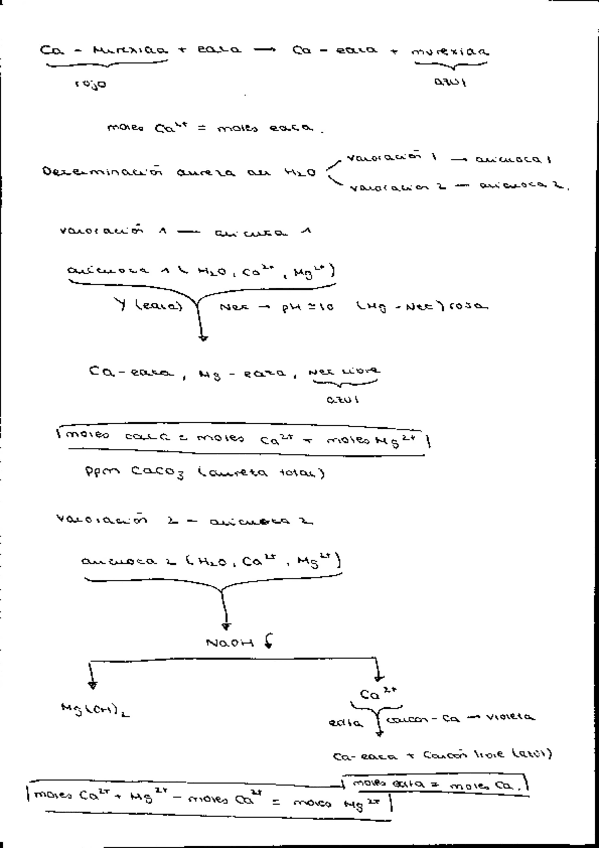 Ca - Murexida + edta → Ca - edta + murexida
rojo azul
moles Ca²⁺ = moles edta.
Determinación dureza del H₂O valoración 1 → alicuota 1
valoración 2 — alicuota 2.
valoración 1 — alicuota 1
alicuota 1 (H₂O, Ca²⁺, Mg²⁺)
Y (edta) Net → pH ≃ 10 (Mg - Net) rosa
Ca-edta, Mg-edta, Net libre
azul
moles edta = moles Ca²⁺ + moles Mg²⁺
ppm CaCO₃ (dureza total)
valoración 2 — alicuota 2
alicuota 2 (H₂O, Ca²⁺, Mg²⁺)
NaOH ↓
Mg(OH)₂ Ca²⁺
edta calcon-Ca → violeta
Ca-edta + Calcon libre (azul)
moles edta = moles Ca.
moles Ca²⁺ + Mg²⁺ - moles Ca²⁺ = moles Mg²⁺